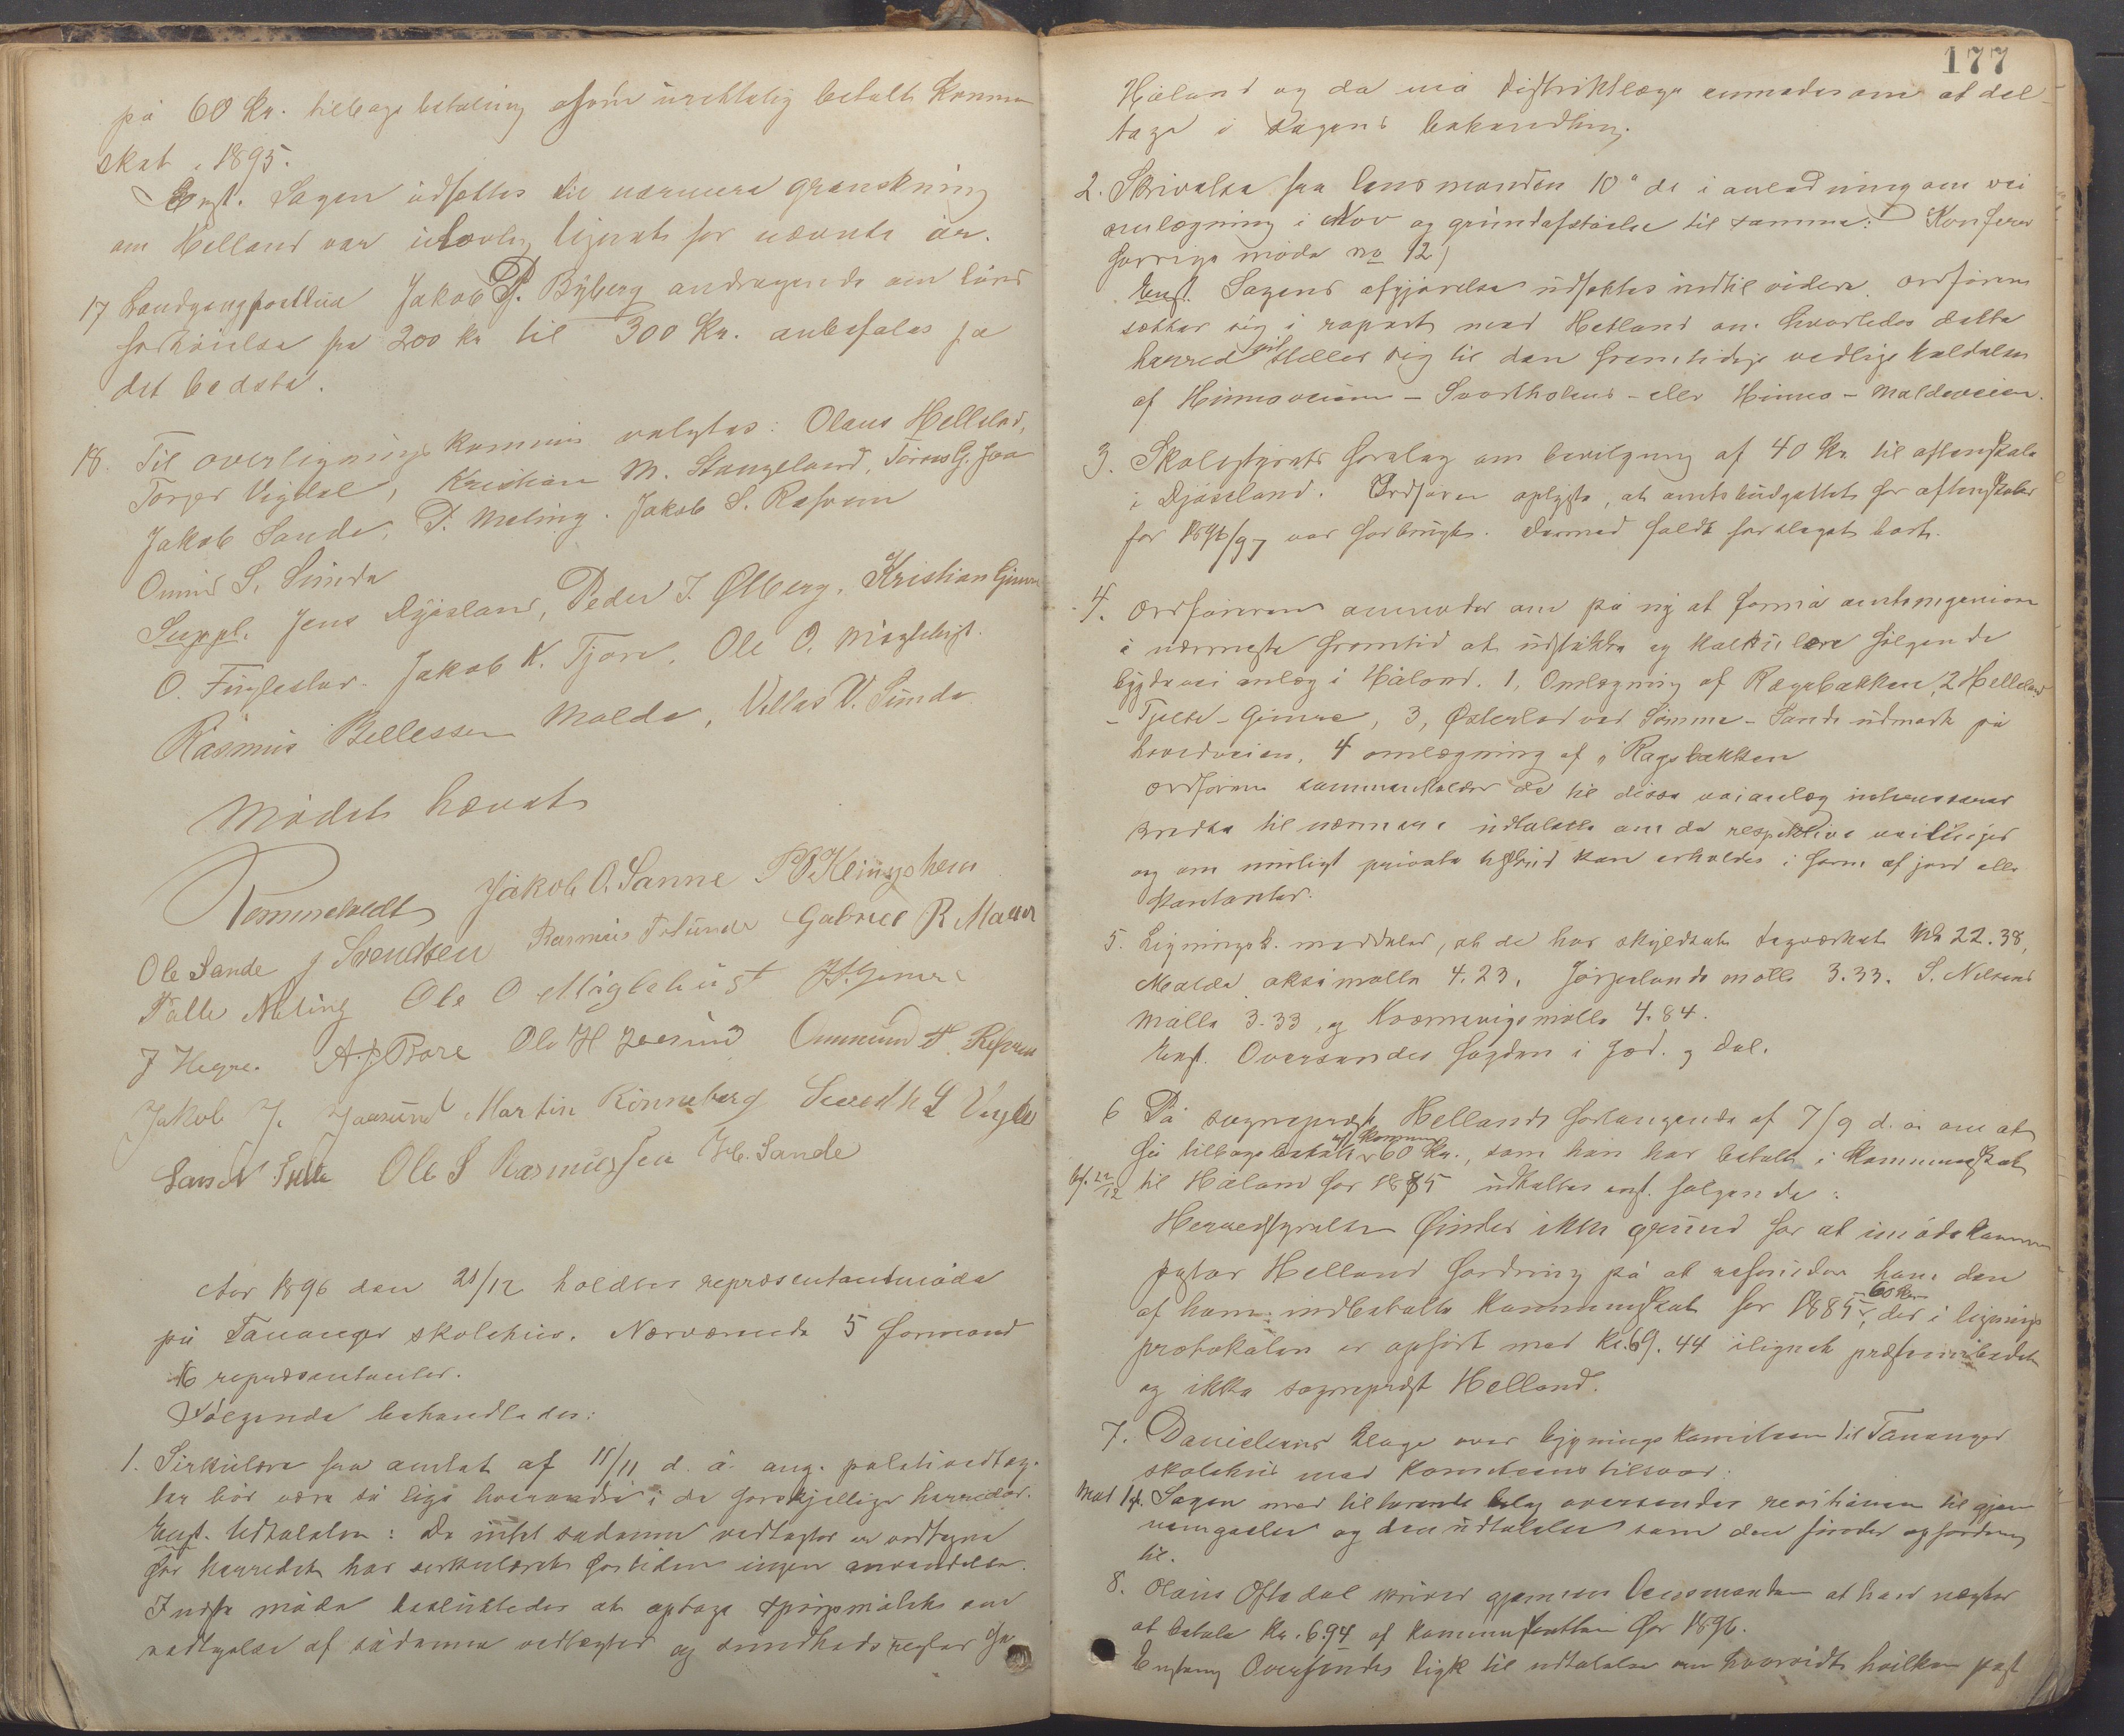 på 60 Kr. tilbagebetaling af som uretteligt betalt kommune
skat i 1895.
Enst. Sagen udsættes til nærmere granskning
om Helland var ulovlig lignet for nævnte år.
17 Landgangsfoged Jakob P. Byberg andragende om løns
forhøielse fra 200 kr til 300 Kr. anbefales på
det bedste.
18. Til overligningskommis valgtes: Olaus Helleland,
Torger Vigdel, Kristian M. Stangeland, Tørres G. Joa
Jakob Sande, P. Meling. Jakob S. Refsnes
Omund S. Sunde
Suppl. Jens Dysjaland, Peder J. Ølberg, Kristian Gimre
O. Fuglestad. Jakob K. Tjora, Ole O. Myklebust.
Rasmus Bellessen Molde, Villas V. Sunde
Mødet hævet
Tommelvedt Jakob O. Sanne P O Kleingsheim
Ole Sande J Svendsen Rasmus T Sunde Gabriel R Malde
Palle Meling Ole O Myklebust J S. Gimre
J Hegre. A. J Rore Ole H Joasund Ommund T. Refsnes
Jakob J. Joasund Martin Rønneberg Sivert L Vigdel
Lars N Sele Ole S Rasmussen H. Sande
Aar 1896 den 21/12 holdtes repræsentantmøde
på Tananger skolehus. Nærværende 5 formænd
16 repræsentanter.
Følgende behandledes:
1. Sirkulære fra amtet af 11/11 d. å. ang. politivedtæg-
ter bør være så lige hverandre i de forskjellige herreder.
Enst. Udtalelse: Da intet sådanne vedtægter er vedtagne
for herredet har sirkulæret fortiden ingen anvendelse.
I neste møde besluttedes at optage spørgsmålet om
vedtagelse af sådanne vedtægter og sundhedsregler for
177
Håland og da må distriktslæge anmodes om at del-
tage i sagens behandling.
2. Skrivelse fra lensmanden 10de ds i anledning om vei
omlægning i Nov og grundafståelse til samme. Konferer
forrige møde no 12)
Enst. Sagens afgjørelse udsættes indtil videre. ordføreren
sætter sig i raport med Hetland om hvorledes dette
herred vil stiller sig til den fremtidige vedligeholdelse
af Hinnaveien - Svartholens - eller Hinna - Maldeveien.
3. Skolestyrets forslag om bevilgning af 40 Kr. til aftenskole
i Dysjaland. Ordføren oplyste, at amtsbudgettet for aftenskoler
for 1896/97 var forbrugt. Dermed faldt forslaget bort.
4. Ordføreren anmoder om på ny at formå amtsingeniøren
i nærmeste fremtid at udstikke og kalkulere følgende
bygdeveianlæg i Håland. 1, Omlægning af Rægebakken, 2 Helleland
- Tjelta - Gimre, 3, Østerlod ved Sømme - Sande udmark på
hovedveien, 4 omlægning af Rægsbakken
Ordføren sammenkalder de til disse veianlæg interesserede
kredse til nærmere udtalelse om de respektive veilinjer
og om muligt private tilskud kan erholdes i form af jord eller
kontanter.
5. Ligningsk. meddeler, at de har skyldsat sagværket Kr 22.38,
Malde oksemølle 4.23, Jørpelands mølle 3.33. S. Nilsens
mølle 3.33, og Kvernevigsmølle 4.84.
Enst. Oversendes fogden i Jæd. og Dal.
6 På sogneprest Hellands forlangende af 7/9 d. å. om at
få tilbagebetalt af kommunen 60 Kr., som han har betalt i kommuneskat
bf. 22/12 til Håland for 1885 udtaltes enst. følgende:
Herredstyrelsen finder ikke grund for at imødekomme
pastor Helland fordring på at refundere ham den
af ham indbetalte kommuneskat for 1885, 60 kr. der i lignings
protokolen er opført med Kr. 69.44 ilignet præsteembedet
og ikke sogneprest Helland.
7. Danielsens klage over bygningskomiteen til Tananger
skolehus med komiteens tilsvar.
Mod 1 st. Sagen med tilhørende bilag oversendes revisionen til gjen
nemgåelse og den udtalelse som den finder opfordring
til.
8. Olaus Oftedal skriver gjennem lensmanden at han nægter
at betale Kr. 6.94 af kommuneskatten for 1896.
Enstemig Oversendes ligk til udtalelse om hvorvidt hvilken post